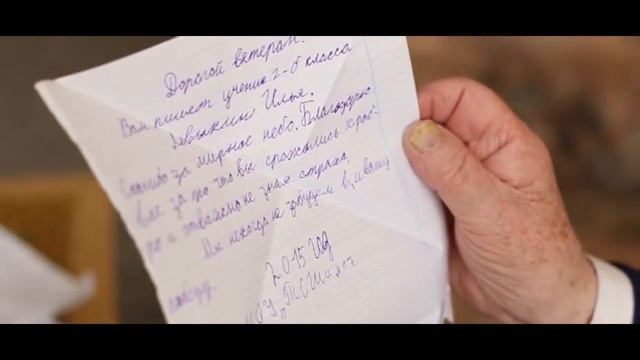 Дорогой ветеран.
Вам пишет ученик 2-б класса
Илья.
Спасибо за мирное небо. Благодарю
вас за то что вы сражались храб-
ро и отважно не зная страха.
Мы некогда не забудем вашу
победу.
2015 год